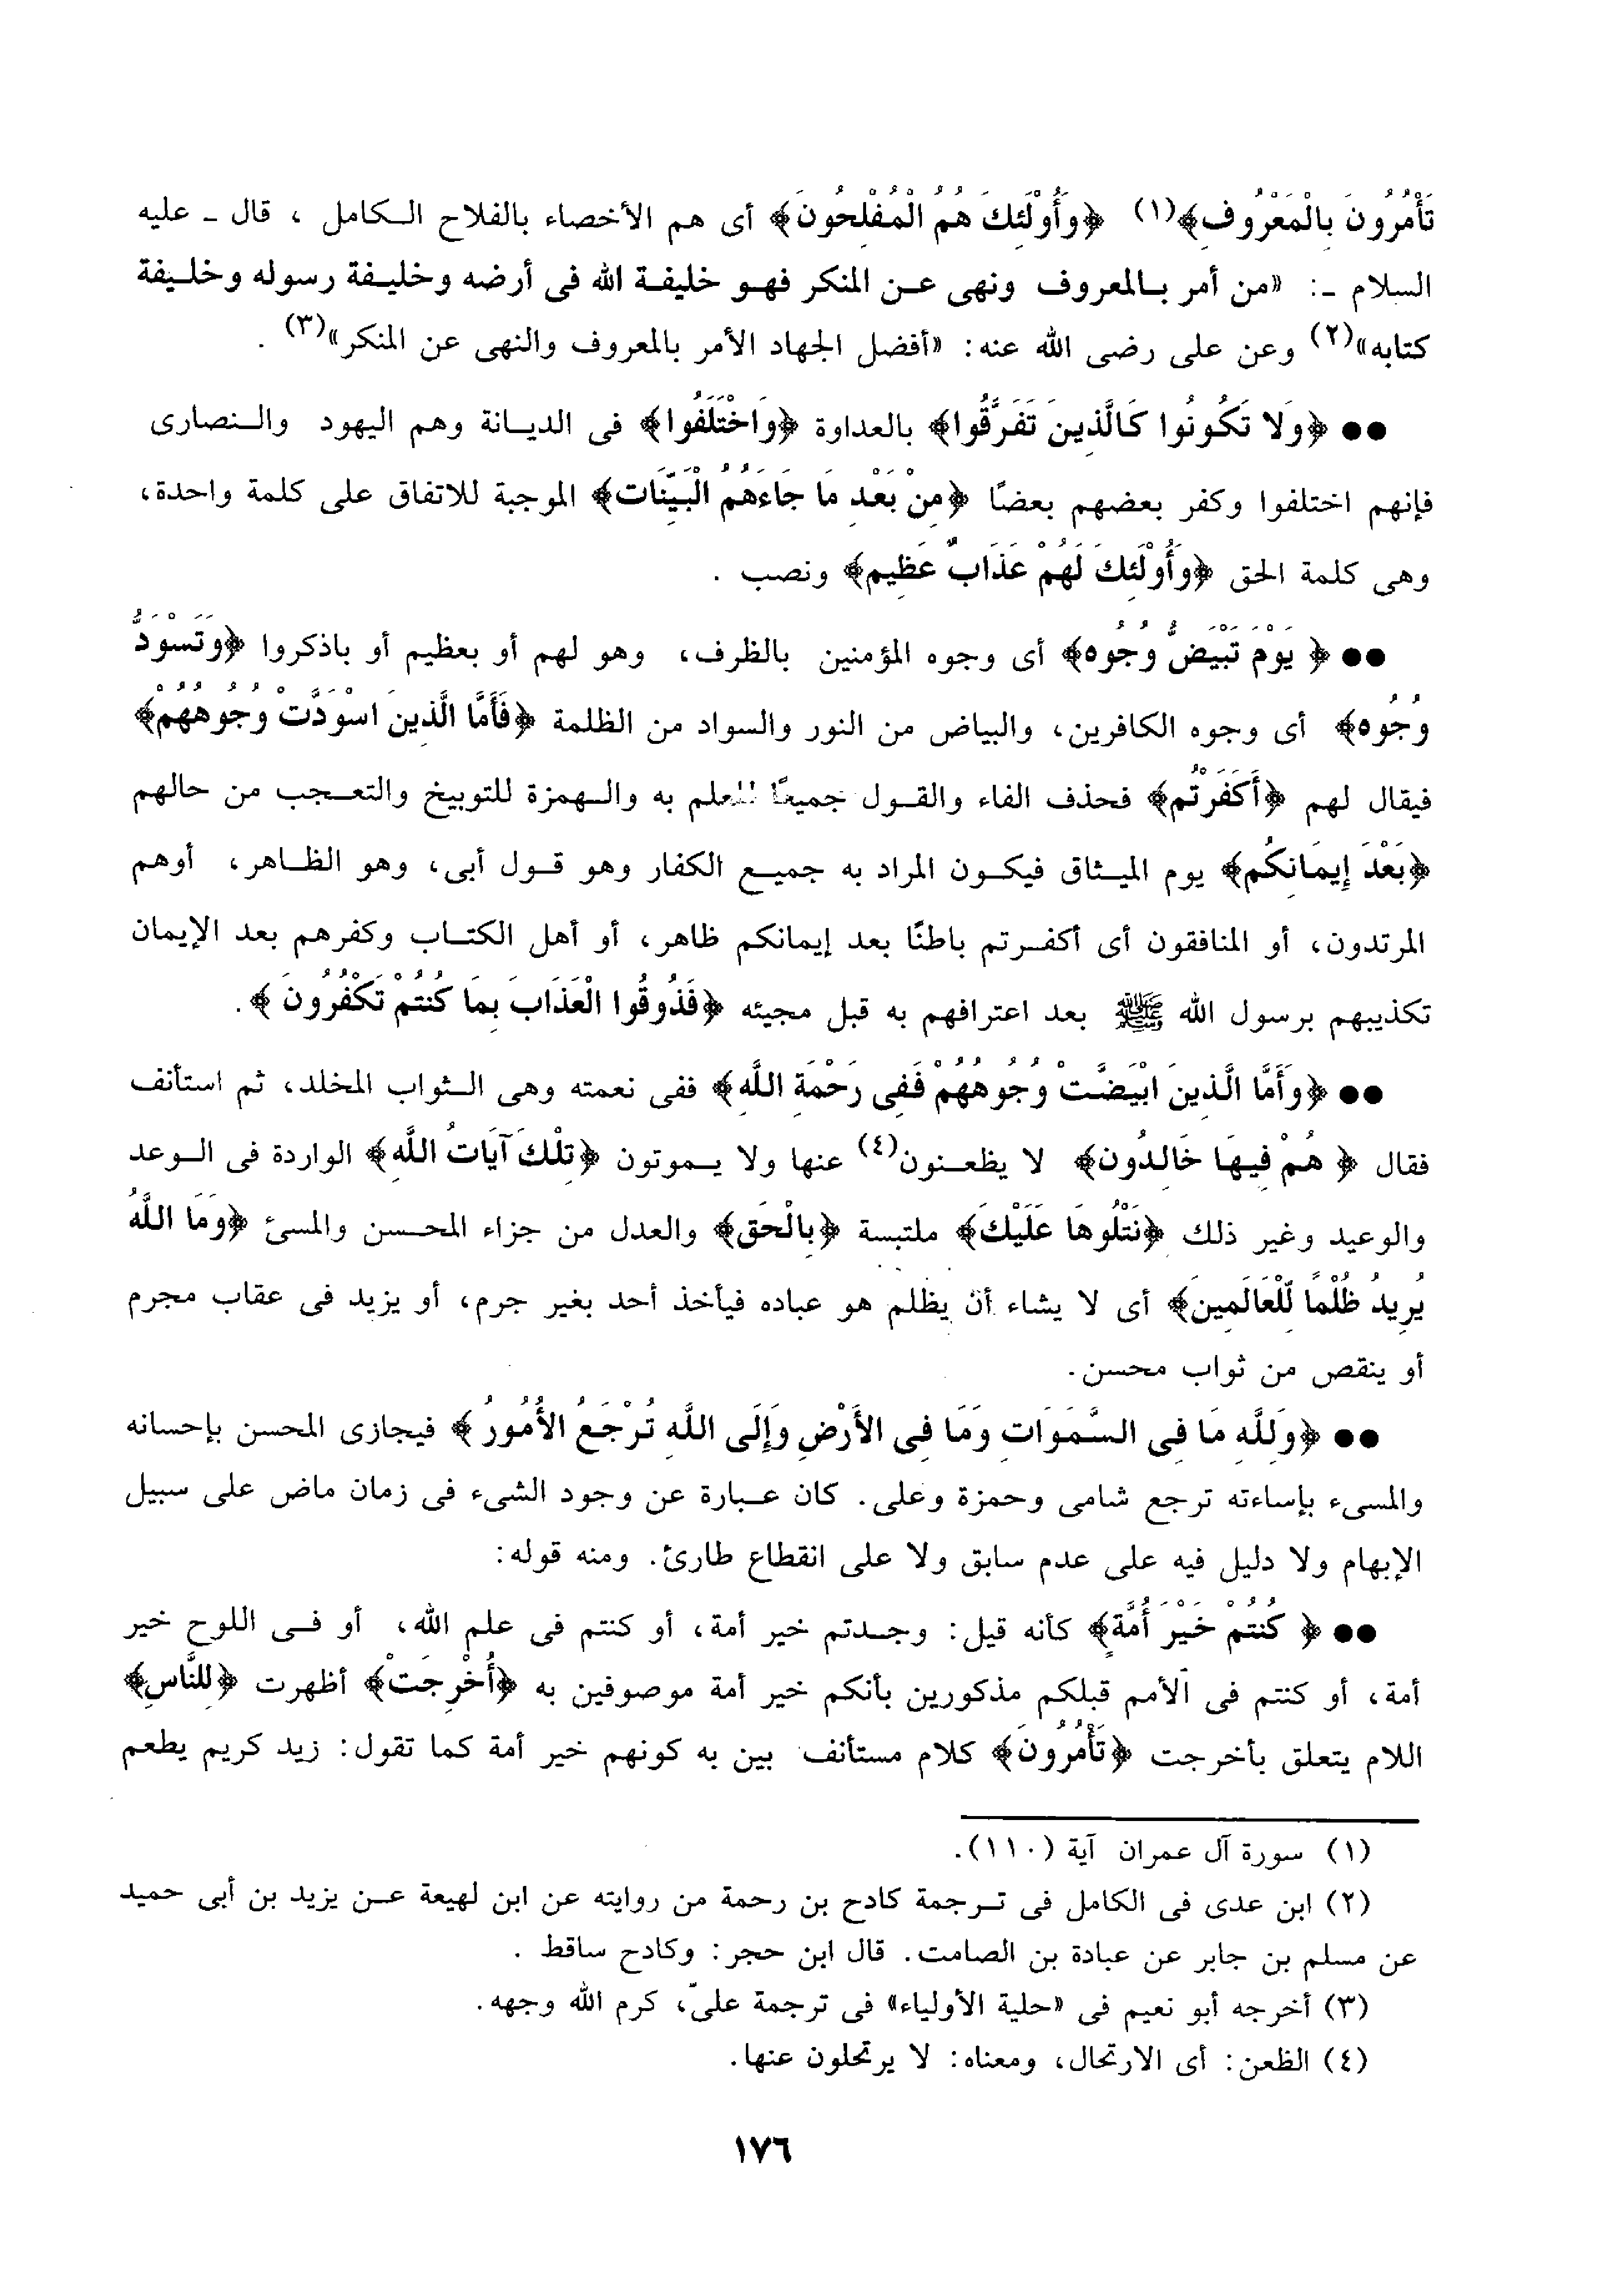 تَأْمُرُونَ بِالْمَعْرُوفِ﴾(١) ﴿وَأُوْلَئِكَ هُمُ الْمُفْلِحُونَ﴾ أى هم الأخصاء بالفلاح الكامل ، قال ـ عليه
السلام ـ: «من أمر بالمعروف ونهى عن المنكر فهو خليفة الله فى أرضه وخليفة رسوله وخليفة
كتابه»(٢) وعن على رضى الله عنه: «أفضل الجهاد الأمر بالمعروف والنهى عن المنكر»(٣) .
●● ﴿وَلا تَكُونُوا كَالَّذِينَ تَفَرَّقُوا﴾ بالعداوة ﴿وَاخْتَلَفُوا﴾ فى الديانة وهم اليهود والنصارى
فإنهم اختلفوا وكفر بعضهم بعضًا ﴿مِنْ بَعْدِ مَا جَاءَهُمُ الْبَيِّنَات﴾ الموجبة للاتفاق على كلمة واحدة،
وهى كلمة الحق ﴿وَأُوْلَئِكَ لَهُمْ عَذَابٌ عَظِيم﴾ ونصب .
●● ﴿ يَوْمَ تَبْيَضُّ وُجُوه﴾ أى وجوه المؤمنين بالظرف، وهو لهم أو بعظيم أو باذكروا ﴿وَتَسْوَدُّ
وُجُوه﴾ أى وجوه الكافرين، والبياض من النور والسواد من الظلمة ﴿فَأَمَّا الَّذِينَ اسْوَدَّتْ وُجُوهُهُمْ﴾
فيقال لهم ﴿أَكَفَرْتُم﴾ فحذف الفاء والقول جميعًا للعلم به والهمزة للتوبيخ والتعجب من حالهم
﴿بَعْدَ إِيمَانِكُم﴾ يوم الميثاق فيكون المراد به جميع الكفار وهو قول أبى، وهو الظاهر، أوهم
المرتدون، أو المنافقون أى أكفرتم باطنًا بعد إيمانكم ظاهر، أو أهل الكتاب وكفرهم بعد الإيمان
تكذيبهم برسول الله ﷺ بعد اعترافهم به قبل مجيئه ﴿فَذُوقُوا الْعَذَابَ بِمَا كُنتُمْ تَكْفُرُونَ ﴾.
●● ﴿وَأَمَّا الَّذِينَ ابْيَضَّتْ وُجُوهُهُمْ فَفِى رَحْمَةِ اللَّهِ﴾ ففى نعمته وهى الثواب المخلد، ثم استأنف
فقال ﴿ هُمْ فِيهَا خَالِدُون﴾ لا يظعنون(٤) عنها ولا يموتون ﴿تِلْكَ آيَاتُ اللَّه﴾ الواردة فى الوعد
والوعيد وغير ذلك ﴿نَتْلُوهَا عَلَيْكَ﴾ ملتبسة ﴿بِالْحَق﴾ والعدل من جزاء المحسن والمسئ ﴿وَمَا اللَّهُ
يُرِيدُ ظُلْمًا لِّلْعَالَمِينَ﴾ أى لا يشاء أن يظلم هو عباده فيأخذ أحد بغير جرم، أو يزيد فى عقاب مجرم
أو ينقص من ثواب محسن.
●● ﴿وَلِلَّهِ مَا فِى السَّمَوَاتِ وَمَا فِى الأَرْضِ وَإِلَى اللَّهِ تُرْجَعُ الأُمُورُ ﴾ فيجازى المحسن بإحسانه
والمسىء بإساءته ترجع شامى وحمزة وعلى. كان عبارة عن وجود الشىء فى زمان ماض على سبيل
الإبهام ولا دليل فيه على عدم سابق ولا على انقطاع طارئ. ومنه قوله:
●● ﴿ كُنتُمْ خَيْرَ أُمَّةٍ﴾ كأنه قيل: وجدتم خير أمة، أو كنتم فى علم الله، أو فى اللوح خير
أمة، أو كنتم فى الأمم قبلكم مذكورين بأنكم خير أمة موصوفين به ﴿أُخْرِجَتْ﴾ أظهرت ﴿لِلنَّاسِ﴾
اللام يتعلق بأخرجت ﴿تَأْمُرُونَ﴾ كلام مستأنف بين به كونهم خير أمة كما تقول: زيد كريم يطعم
(١) سورة آل عمران آية (١١٠).
(٢) ابن عدى فى الكامل فى ترجمة كادح بن رحمة من روايته عن ابن لهيعة عن يزيد بن أبى حميد
عن مسلم بن جابر عن عبادة بن الصامت. قال ابن حجر: وكادح ساقط .
(٣) أخرجه أبو نعيم فى «حلية الأولياء» فى ترجمة علىّ، كرم الله وجهه.
(٤) الظعن: أى الارتحال، ومعناه: لا يرتحلون عنها.
١٧٦